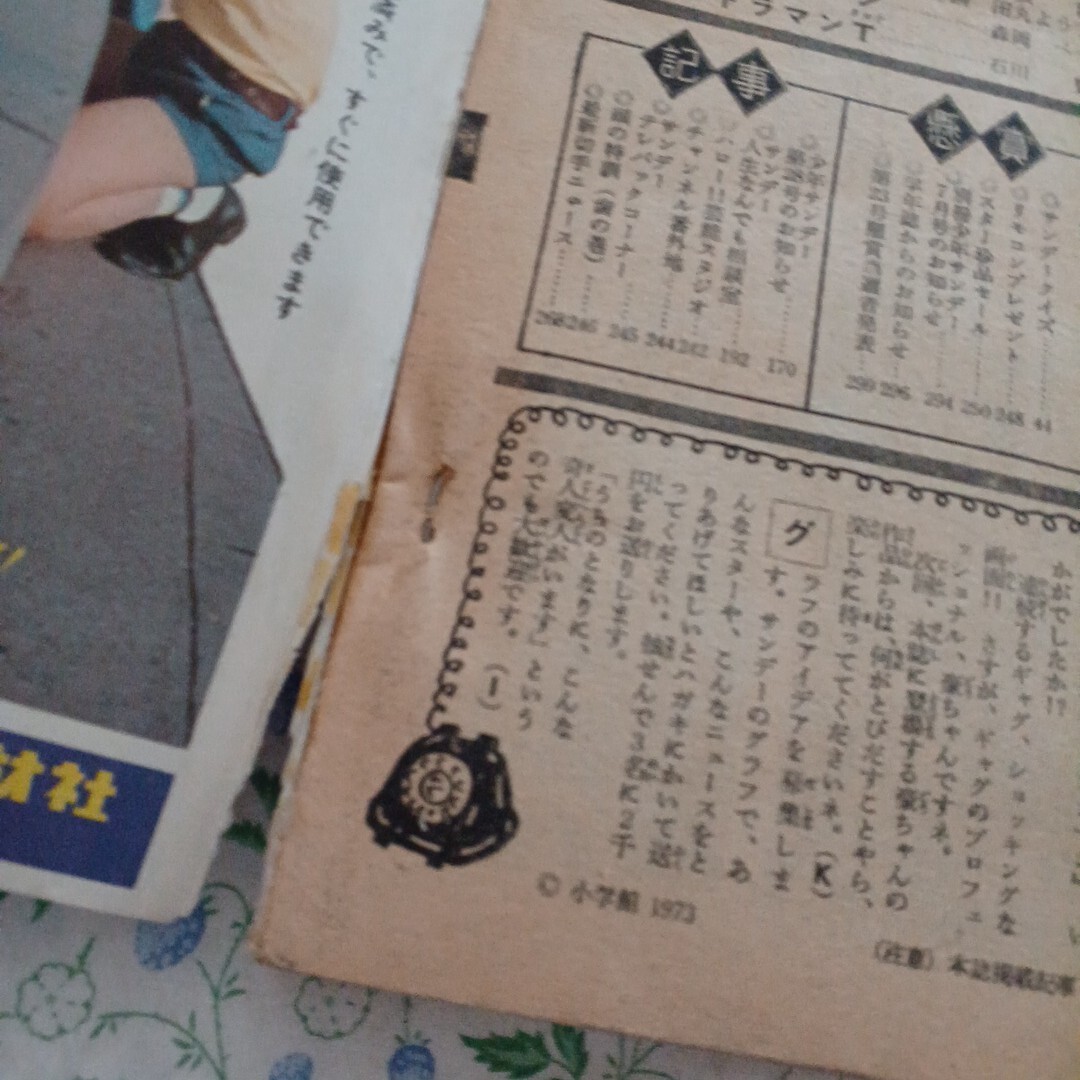 ドラマンT
田丸よう
森岡
石川
懸賞
◎サンデークイズ……44
◎リモコンプレゼント……248
◎スター珍品セール……250
◎別冊少年サンデー
7月号のお知らせ……294
◎学年誌からのお知らせ……296
◎第23号懸賞当選者発表……299
記事
◎少年サンデー
第28号のお知らせ……170
◎サンデー
人生なんでも相談室……192
◎ハロー!!芸能スタジオ……242
◎チャンネル番外地……244
◎サンデー
テレパックコーナー……245
◎頭の特訓(寅の巻)……246
◎最新切手ニュース……268
かがでしたか!!
連続するギャグ、ショッキングな
画面!! さすが、ギャグのプロフェ
ッショナル、豪ちゃんですネ。
次回、本誌に登場する豪ちゃんの
作品からは、何がとびだすことやら、
楽しみに待っててくださいネ。(K)
グラフのアイデアを募集しま
す。サンデーのグラフで、あ
んなスターや、こんなニュースをと
りあげてほしいとハガキにかいて送
ってください。抽せんで3名に2千
円をお送りします。
「うちのとなりに、こんな
奇人変人がいます」という
のでも大歓迎です。 (I)
© 小学館 1973
(注意) 本誌掲載記事
済みで、すぐに使用できます
材社